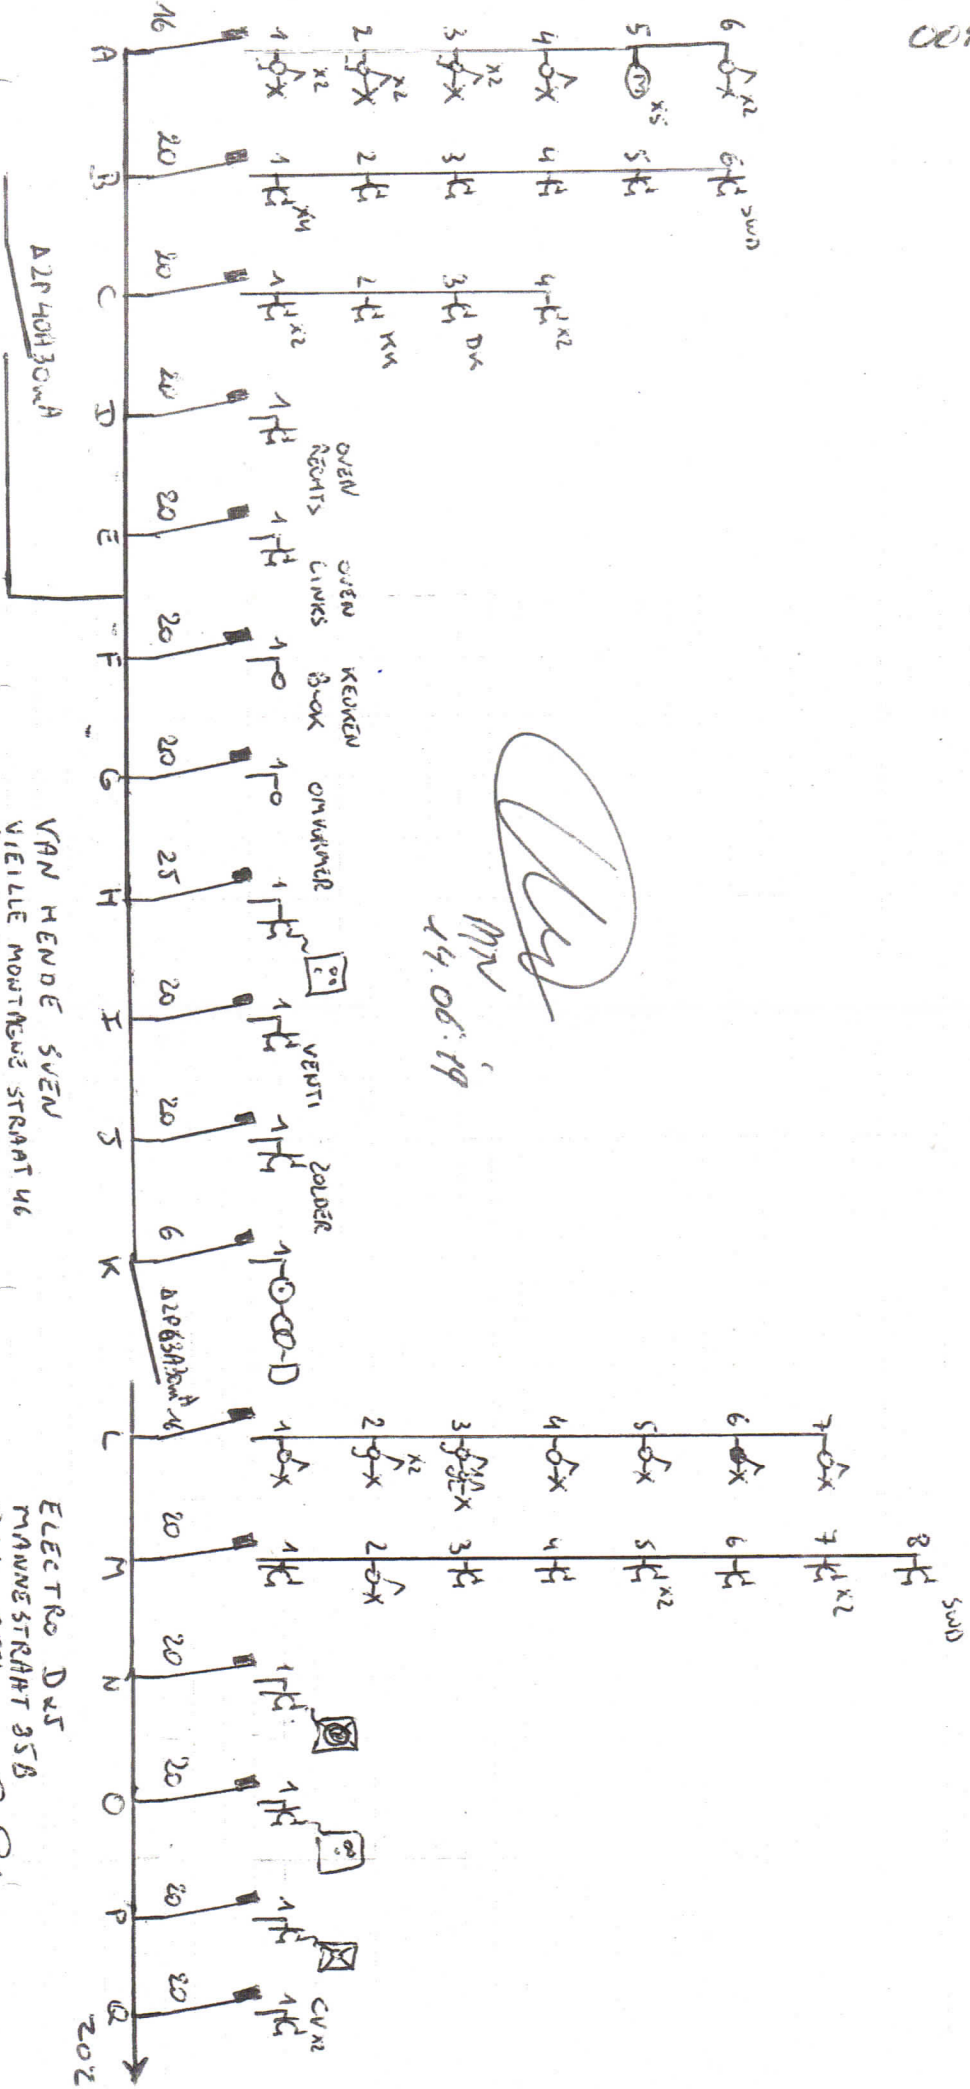 16
A
1 x2
2 x2
3 x2
4
5 M x5
6 x2
20
B
1 x4
2
3
4
5
6 SWD
20
C
1 x2
2 KK
3 DK
4 x2
20
D
1
OVEN
RECHTS
20
E
1
OVEN
LINKS
20
F
1
KEUKEN
20
G
1
OMVORMER
25
H
1
20
I
1
VENTI
20
J
1
ZOLDER
6
K
1
Δ2P40A30mA
Δ2P63A30mA
16
L
1
2 x2
3
4
5
6
7
20
M
1
2
3
4
5 x2
6
7 x2
8 SWD
20
N
1
20
O
1
20
P
1
20
Q
1
CV x2
14.06.19
VAN HENDE SVEN
VIEILLE MONTAGNE STRAAT 46
ELECTRO D&S
MANNESTRAAT 85B